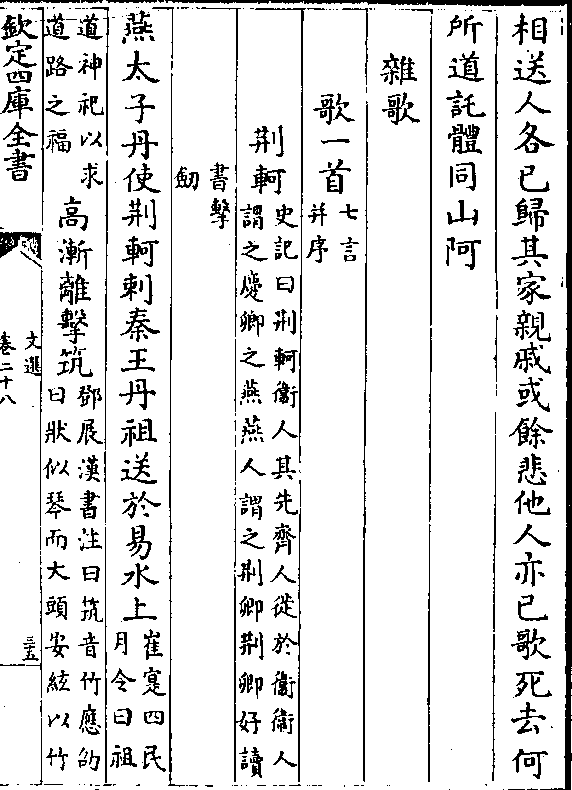 相送人各已歸其家親戚或餘悲他人亦已歌死去何
所道託體同山阿
雜歌
歌一首
七言
并序
荆軻
史記曰荆軻衞人其先齊人徙於衞衞人
謂之慶卿之燕燕人謂之荆卿荆卿好讀
書擊
劒
燕太子丹使荆軻刺秦王丹祖送於易水上
崔寔四民
月令曰祖
道神祀以求
道路之福
高漸離擊筑
鄧展漢書注曰筑音竹應劭
曰狀似琴而大頭安絃以竹
欽定四庫全書
文選
卷二十八
三五